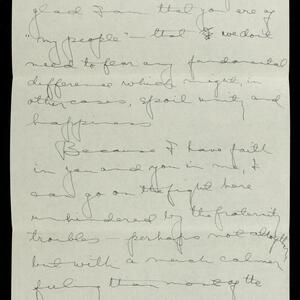 glad I am that you are of
"my people" — that I we don't
need to fear any fundamental
difference which might, in
other cases, spoil unity and
happiness
Because I have faith
in you and you in me, I
can go on the fight here
unhindered by the fraternity
troubles — perhaps not altogether
but with a much calmer
feeling than most of the